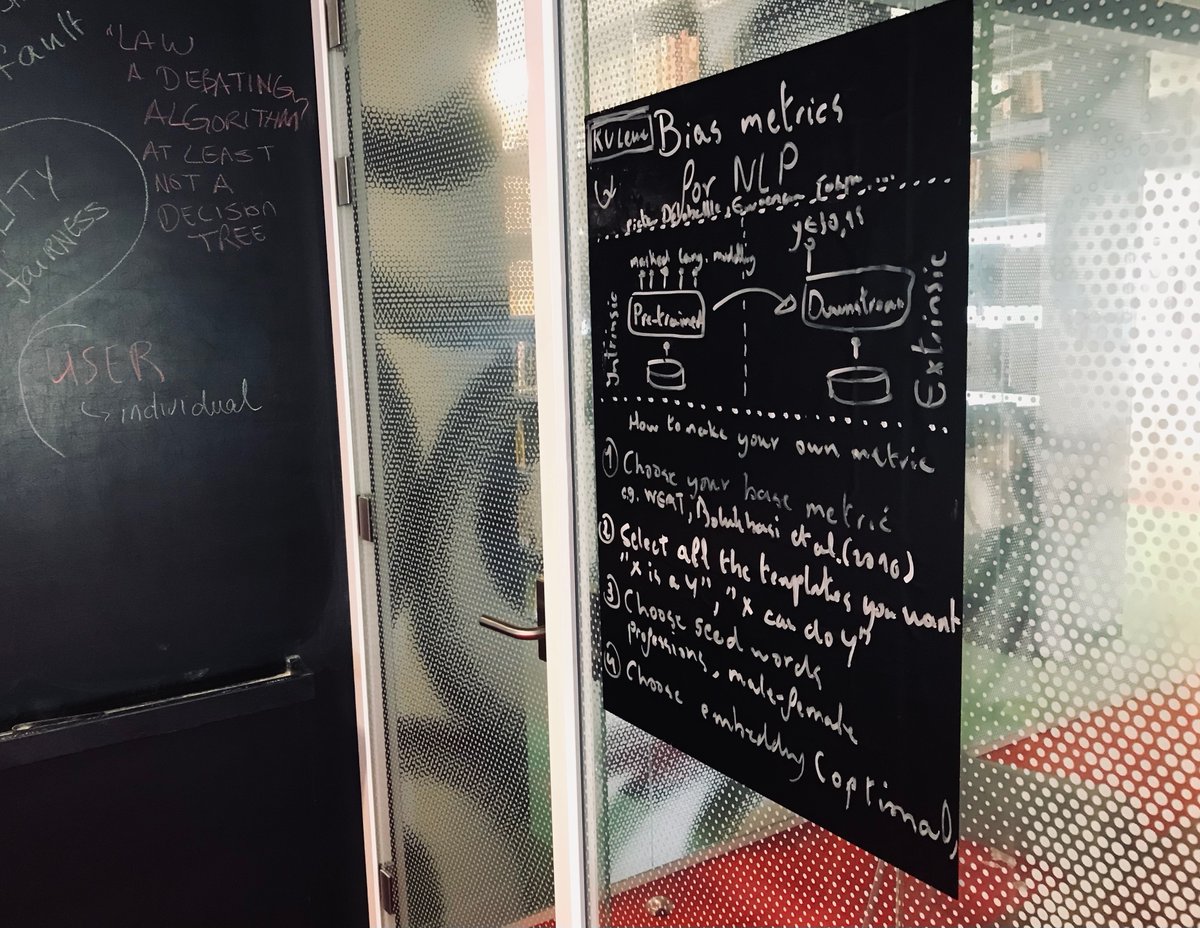 fault
"LAW
A DEBATING
ALGORITHM"
AT LEAST
NOT A
DECISION
TREE
LITY
fairness
USER
↳ individual
KU Leuven
Bias metrics
for NLP
↳
Pieter Delobelle, Ewoenam
masked lang. modelling
y∈{0,1}
Intrinsic
Pre-trained
Downstream
Extrinsic
How to make your own metric
① Choose your base metric
eg. WEAT, Bolukbasi et al. (2016)
② Select all the templates you want
"x is a y", "x can do y"
③ Choose seed words
professions, male-female
④ Choose embedding (optional)